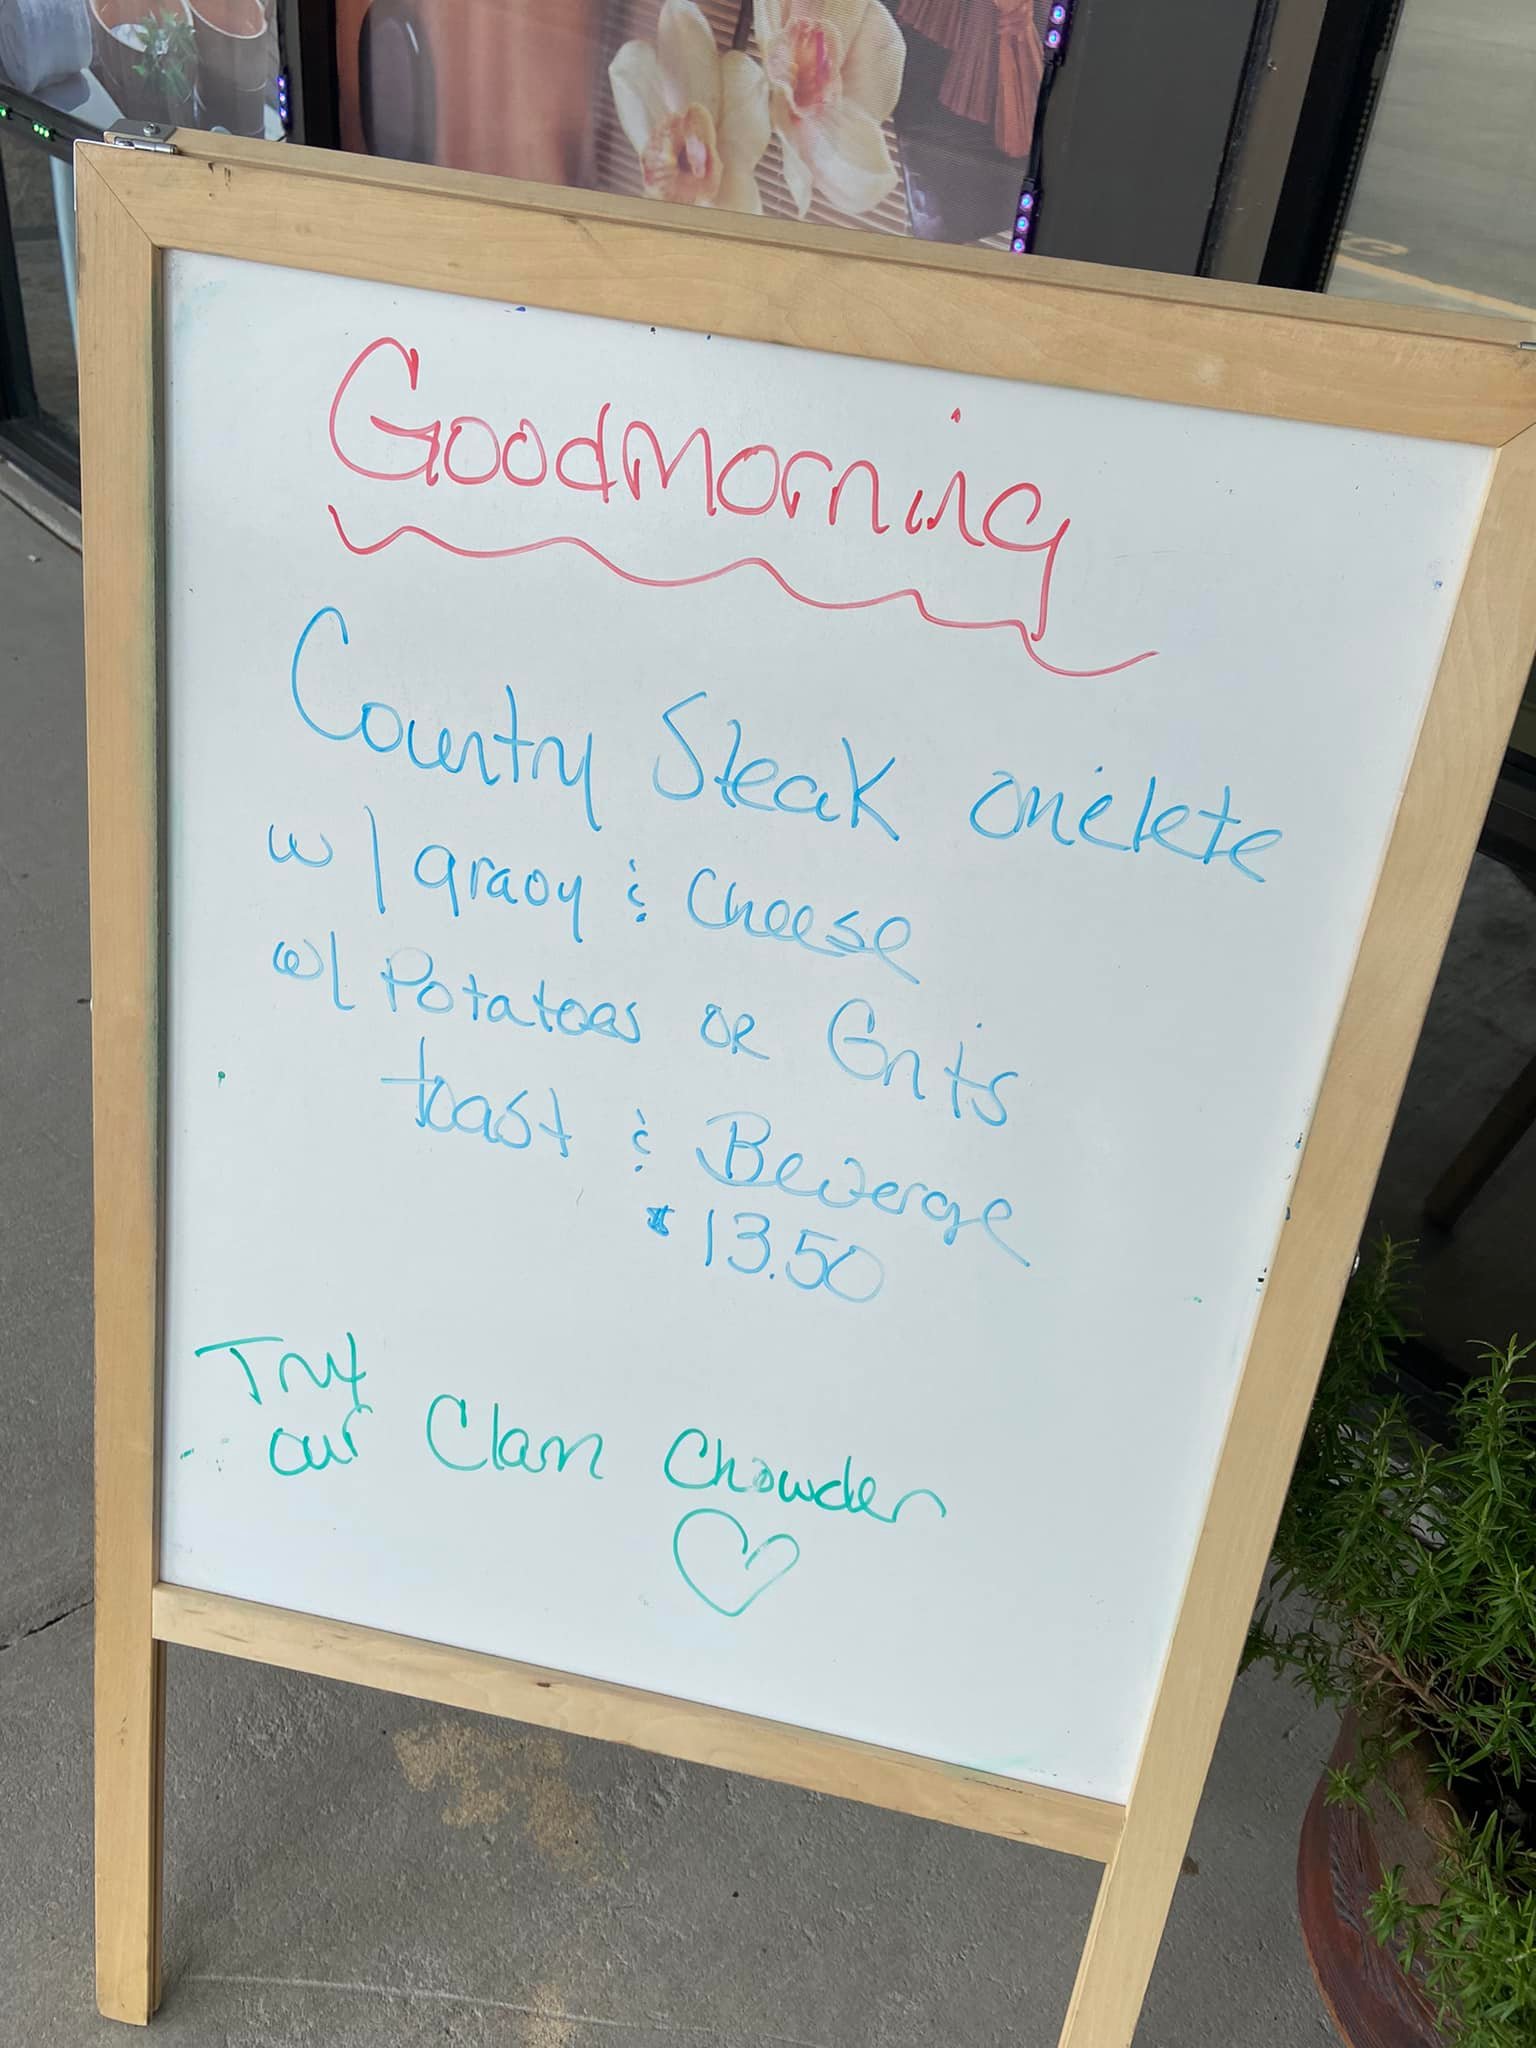 Goodmorning
Country Steak omelete
w/ gravy & Cheese
w/ Potatoes or Grits
toast & Beverage
$13.50
Try
our Clam Chowder